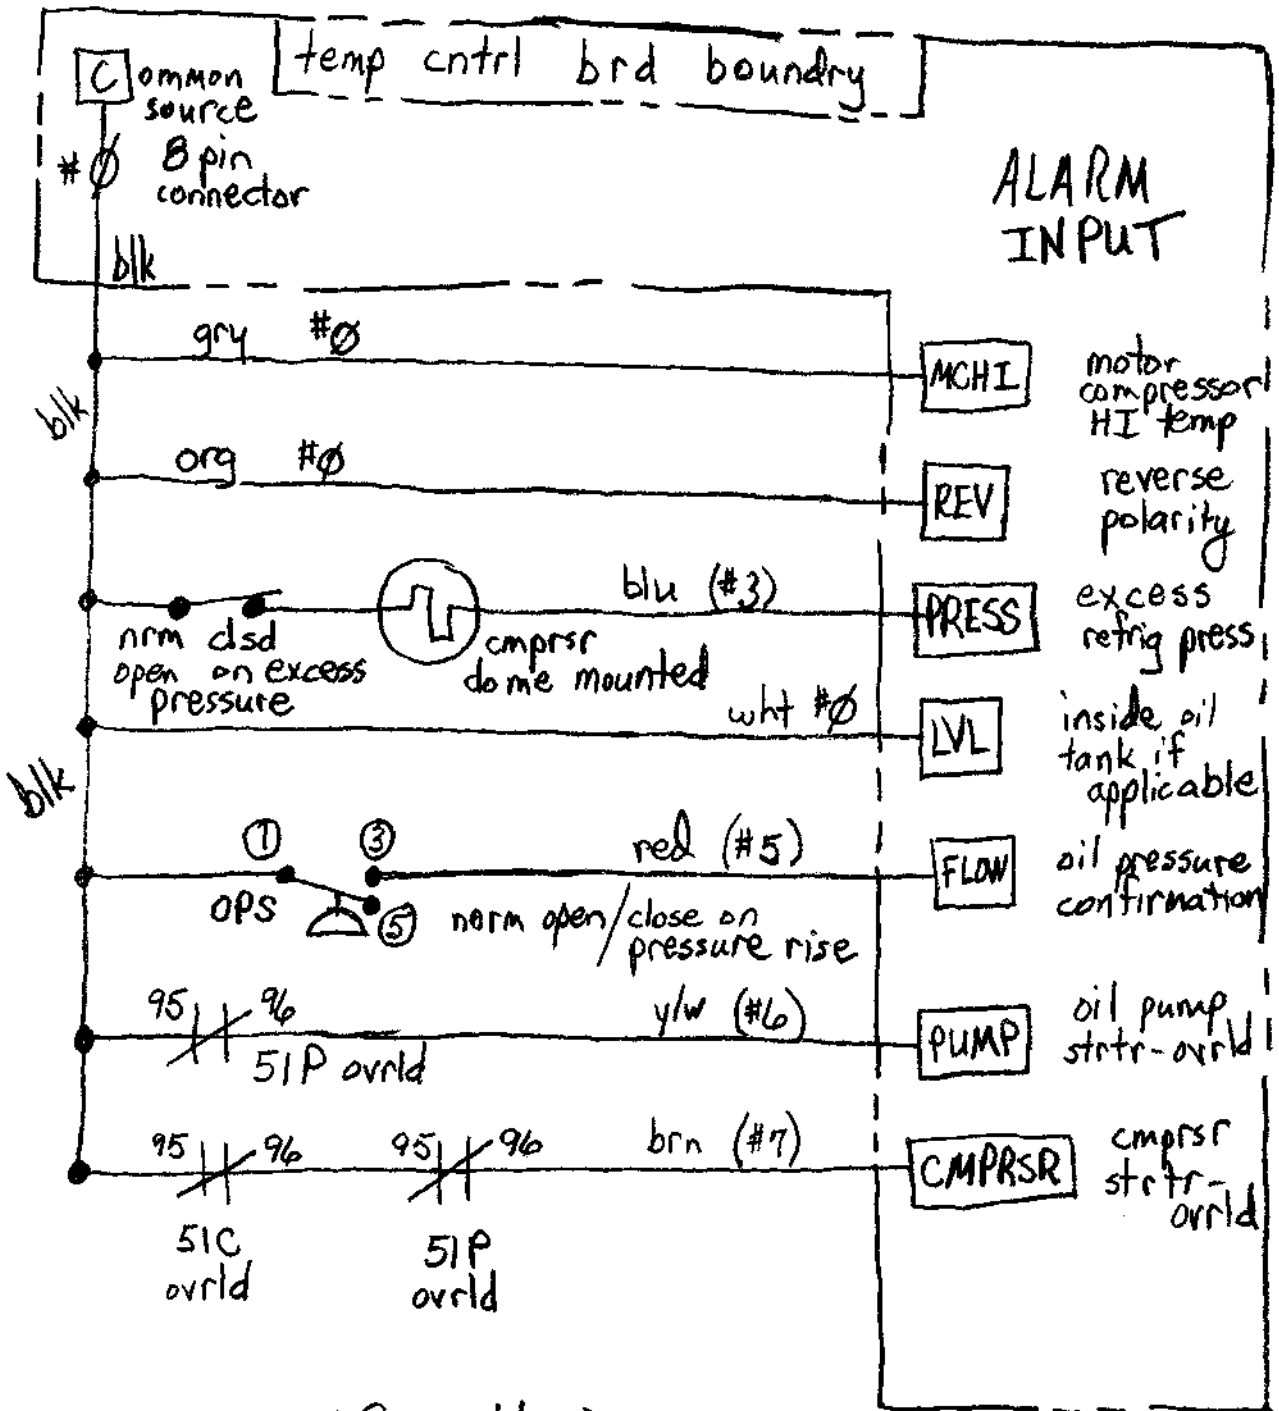 temp cntrl brd boundry
C ommon
source
# Ø 8 pin
connector
ALARM
INPUT
blk
gry #Ø
MCHI
motor
compressor
HI temp
blk
org #Ø
REV
reverse
polarity
blu (#3)
PRESS
excess
refrig press
nrm clsd
open on excess
pressure
cmprsr
dome mounted
wht #Ø
LVL
inside oil
tank if
applicable
blk
① ③
red (#5)
FLOW
oil pressure
confirmation
OPS
⑤
norm open/close on
pressure rise
95 96
y/w (#6)
PUMP
oil pump
strtr-ovrld
51P ovrld
95 96 95 96
brn (#7)
CMPRSR
cmprsr
strtr-
ovrld
51C
ovrld
51P
ovrld